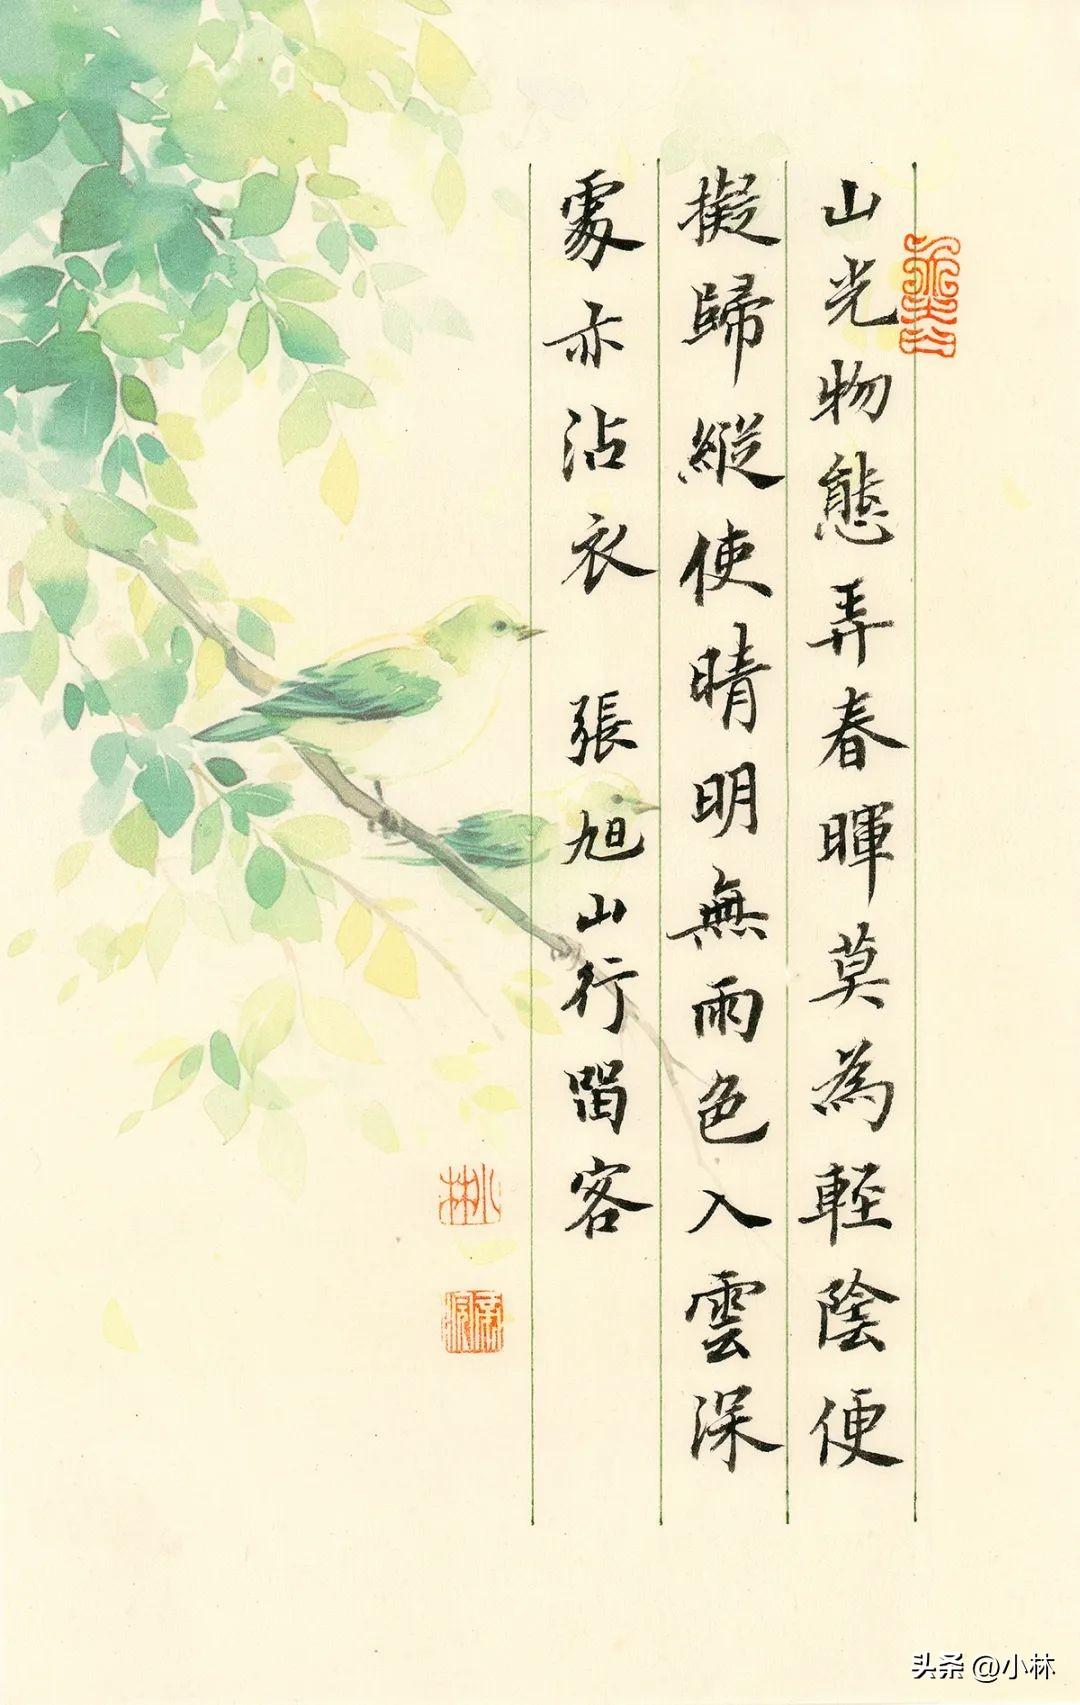 山光物態弄春暉莫為輕陰便
擬歸縱使晴明無雨色入雲深
處亦沾衣 張旭山行留客
小林
头条 @小林